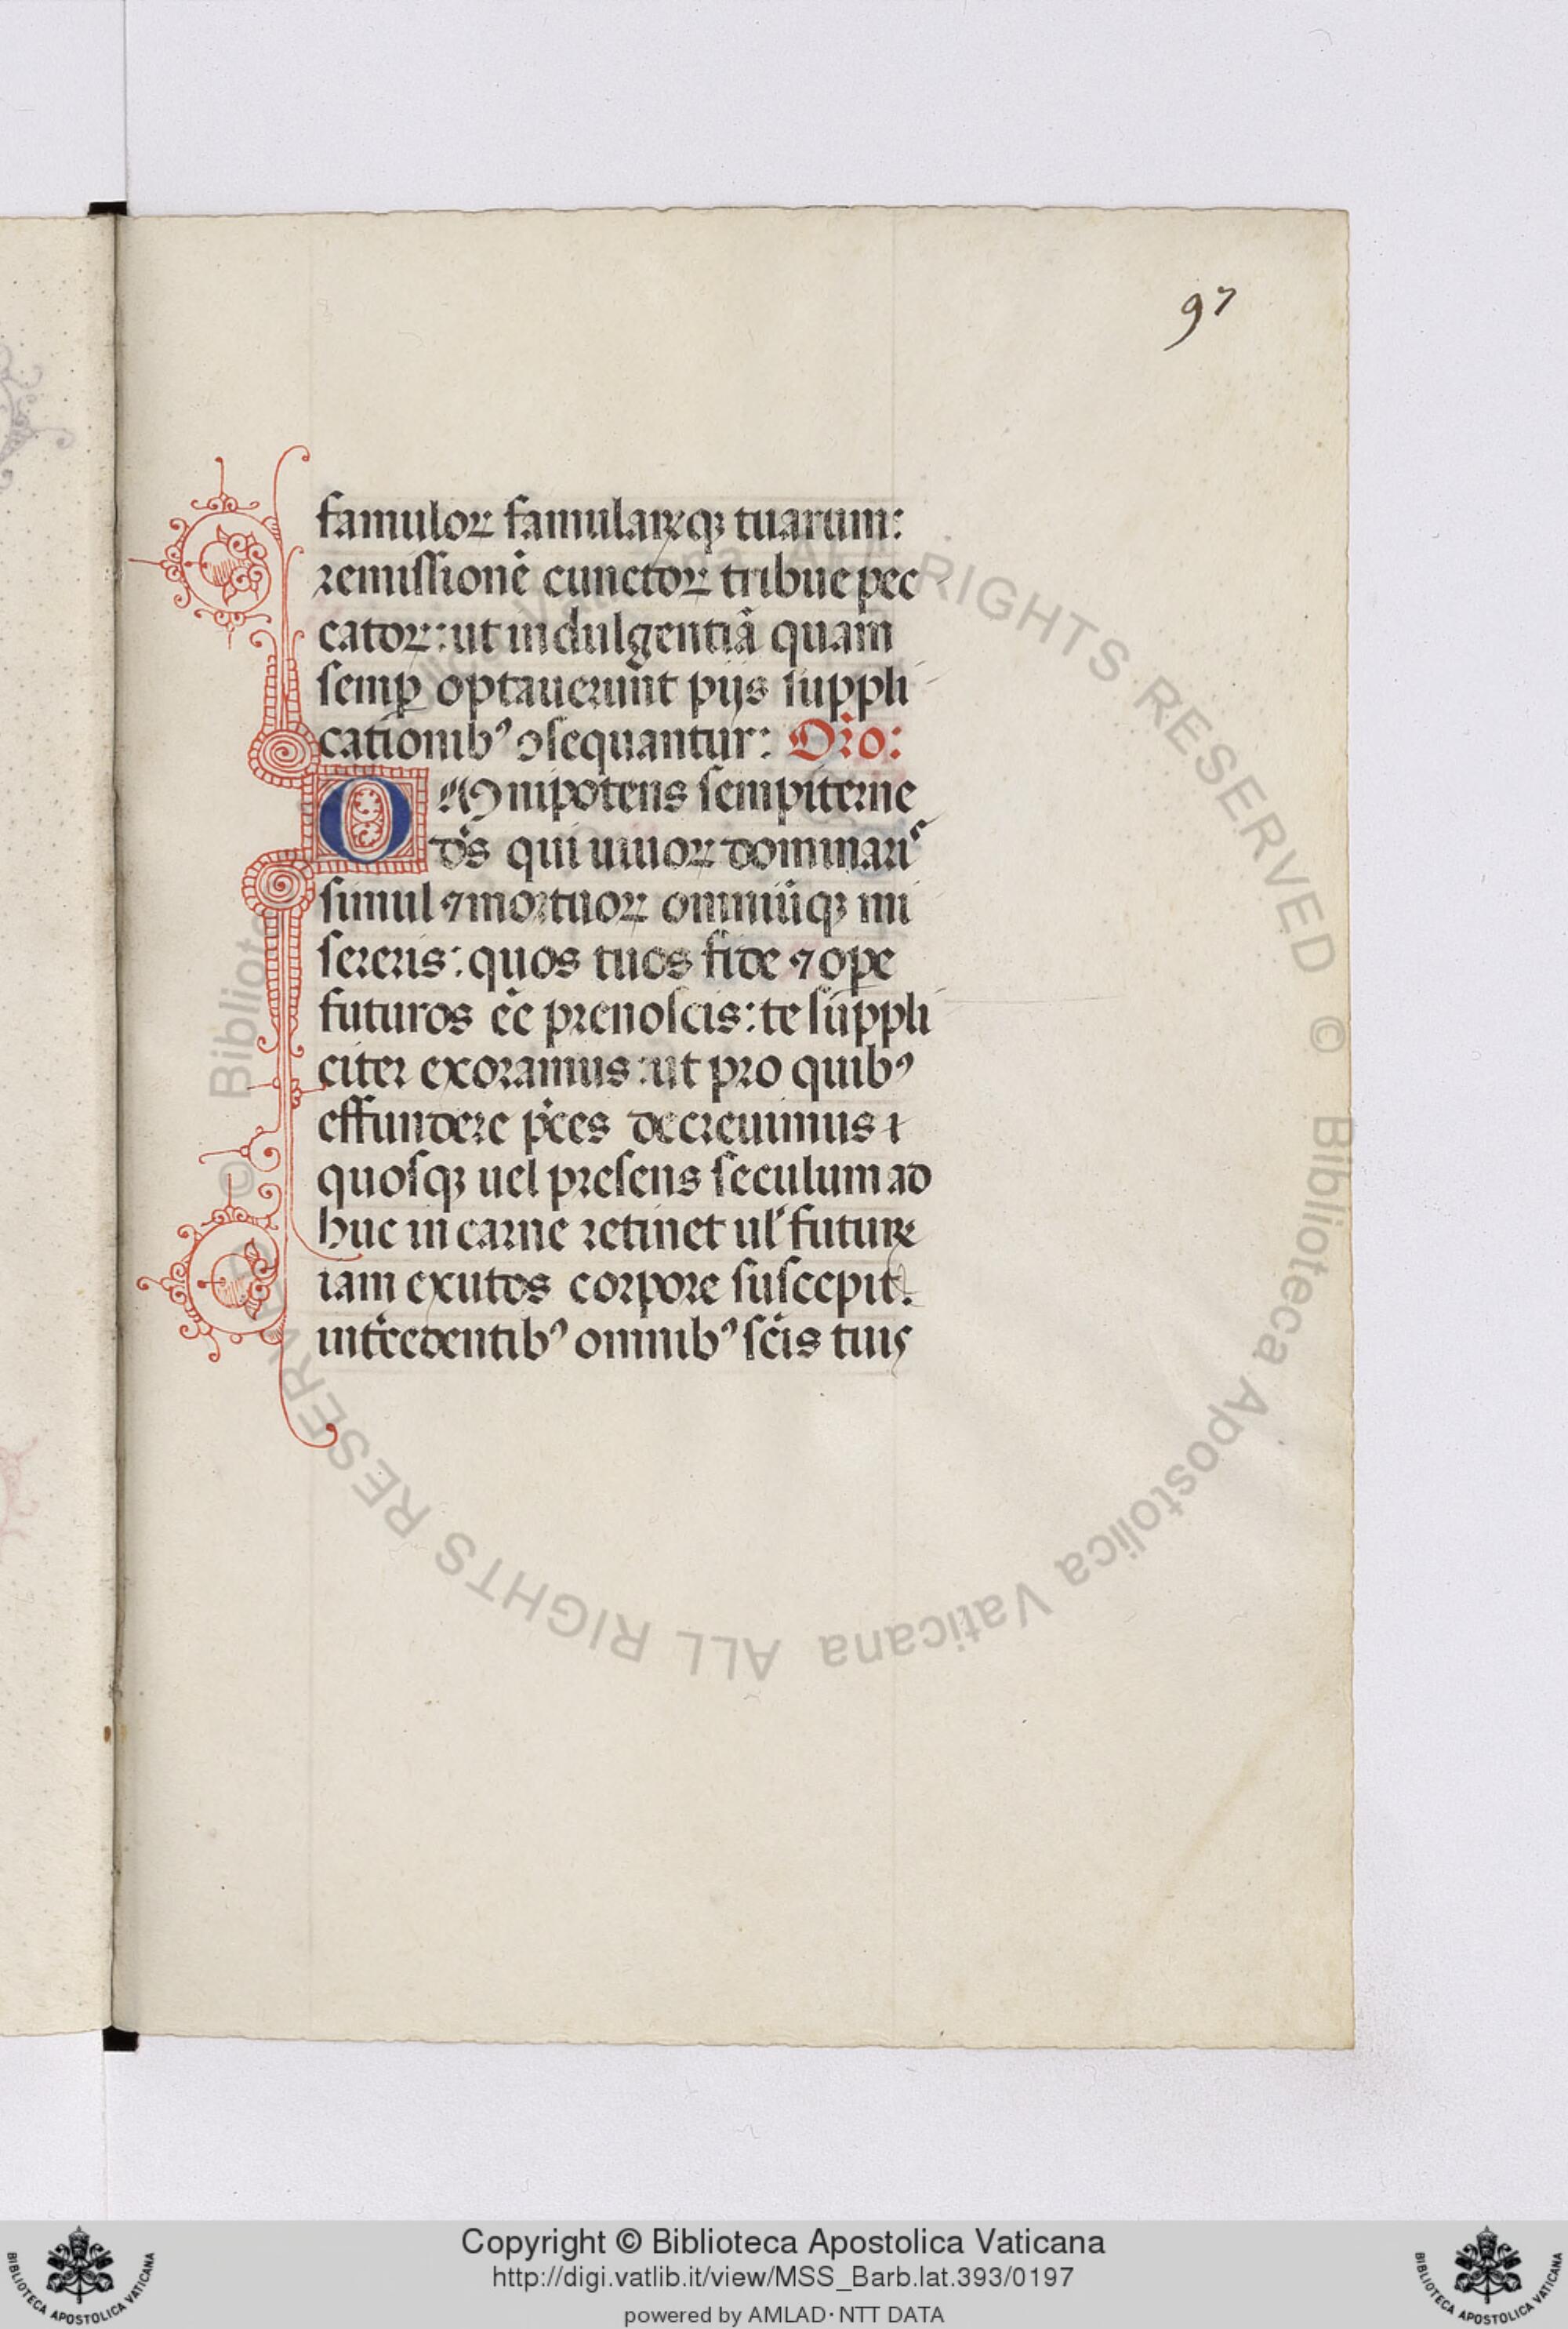 97
famuloꝝ famulaꝝqꝫ tuarum:
remissionē cunctoꝝ tribue pec
catoꝝ: ut indulgentiā quam
semꝑ optauerunt pijs suppli
cationibꝰ ꝯsequantur: Oro:
OMnipotens sempiterne
ds qui uiuoꝝ dominaris
simul ⁊ mortuoꝝ omniūqꝫ mi
sereris: quos tuos fide ⁊ ope
futuros ēe prenoscis: te suppli
citer exoramus: ut pro quibꝰ
effundere pces decreuimus
quosqꝫ uel presens seculum ad
huc in carne retinet ul futurꝝ
iam exutos corpore suscepit.
intcedentibꝰ omnibꝰ scis tuis
© Biblioteca Apostolica Vaticana ALL RIGHTS RESERVED
© Biblioteca Apostolica Vaticana ALL RIGHTS RESERVED
Copyright © Biblioteca Apostolica Vaticana
http://digi.vatlib.it/view/MSS_Barb.lat.393/0197
powered by AMLAD·NTT DATA
BIBLIOTECA APOSTOLICA VATICANA
BIBLIOTECA APOSTOLICA VATICANA